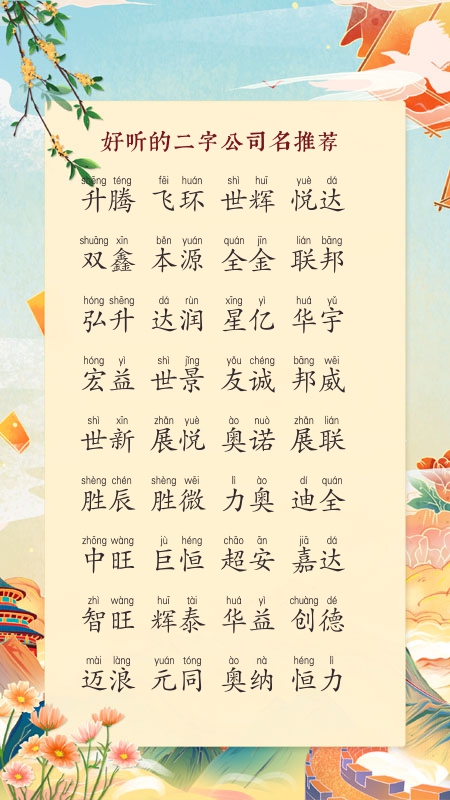 好听的二字公司名推荐
shēng téng fēi huán shì huī yuè dá
升腾 飞环 世辉 悦达
shuāng xīn běn yuán quán jīn lián bāng
双鑫 本源 全金 联邦
hóng shēng dá rùn xīng yì huá yǔ
弘升 达润 星亿 华宇
hóng yì shì jǐng yǒu chéng bāng wēi
宏益 世景 友诚 邦威
shì xīn zhǎn yuè ào nuò zhǎn lián
世新 展悦 奥诺 展联
shèng chén shèng wēi lì ào dí quán
胜辰 胜微 力奥 迪全
zhōng wàng jù héng chāo ān jiā dá
中旺 巨恒 超安 嘉达
zhì wàng huī tài huá yì chuàng dé
智旺 辉泰 华益 创德
mài làng yuán tóng ào nà héng lì
迈浪 元同 奥纳 恒力